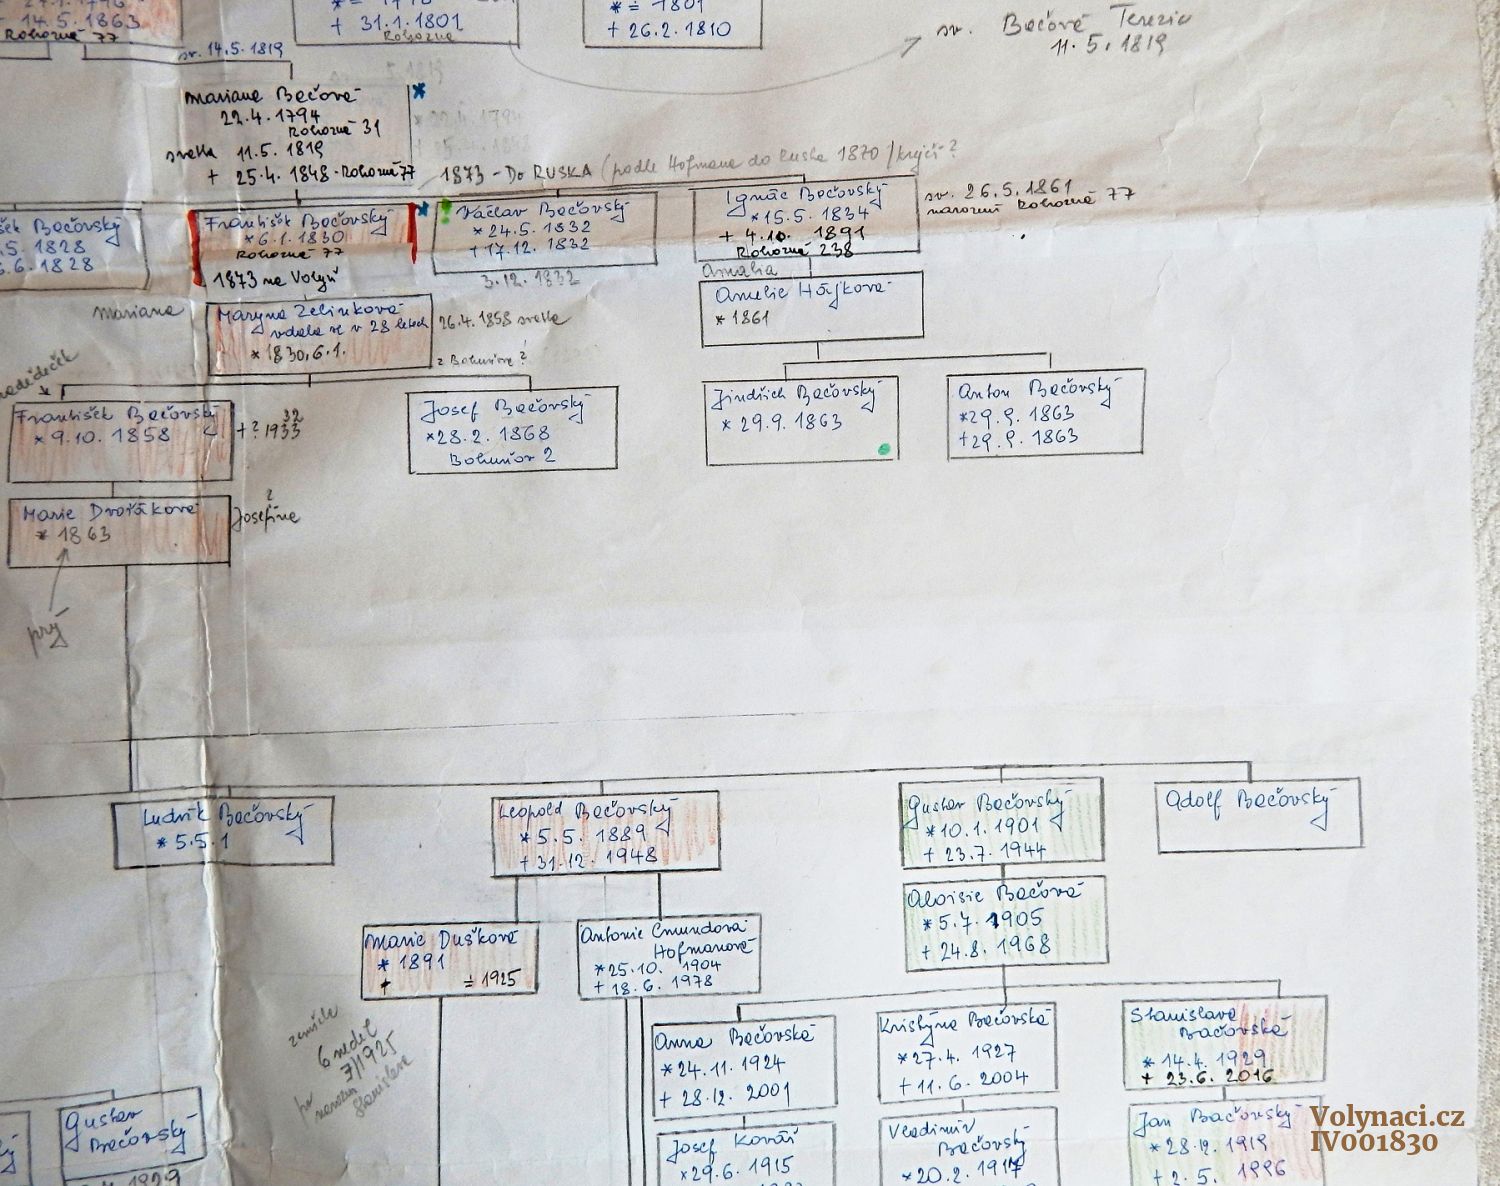 14.5.1863
Rohozná 77
+ 31.1.1801
Rohozná
* = 1801
+ 26.2.1810
sv. Bečové Terezie
11.5.1819
sv. 14.5.1819
Mariana Bečová
22.4.1794
Rohozná 31
svatba 11.5.1819
+ 25.4.1848 - Rohozná 77
1873 - Do RUSKA (podle Hofmana do Ruska 1870 / krejčí?
Bečovský
.5.1828
.6.1828
František Bečovský
* 6.1.1830
Rohozná 77
1873 na Volyň
! Václav Bečovský
* 24.5.1832
+ 17.12.1832
3.12.1832
Ignác Bečovský
* 15.5.1834
+ 4.10.1891
Rohozná 238
sv. 26.5.1861
narození Rohozná 77
Mariana
Maryna Zelinková
vdala se v 28 letech
* 1830, 6.1.
26.4.1858 svatba
z Bohušova?
Amalia
Amelie Hájková
* 1861
pradědeček
František Bečovský
* 9.10.1858
+ ? 1933
32
Josef Bečovský
* 28.2.1868
Bohušov 2
Jindřich Bečovský
* 29.9.1863
Anton Bečovský
* 29.9.1863
+ 29.9.1863
Marie Dvořáková
* 1863
?
Josefína
prý
Ludvík Bečovský
* 5.5.1
Leopold Bečovský
* 5.5.1889
+ 31.12.1948
Gustav Bečovský
* 10.1.1901
+ 23.7.1944
Adolf Bečovský
Aloisie Bečová
* 5.7.1905
+ 24.8.1968
Marie Dušková
* 1891
+ = 1925
Antonie Cmundová
Hofmanová
* 25.10.1904
+ 18.6.1978
zemřela
6 neděl
7/1925
po narození
Stanislava
Anna Bečovská
* 24.11.1924
+ 28.12.2001
Kristýna Bečovská
* 27.4.1927
+ 11.6.2004
Stanislava
Bačovská
* 14.4.1929
+ 23.6.2016
Gustav
Bečovský
Josef Kovář
* 29.6.1915
Vladimír
Bečovský
* 20.2.1917
Jan Bačovský
* 28.12.1919
+ 2.5.1996
Volynaci.cz
IV001830